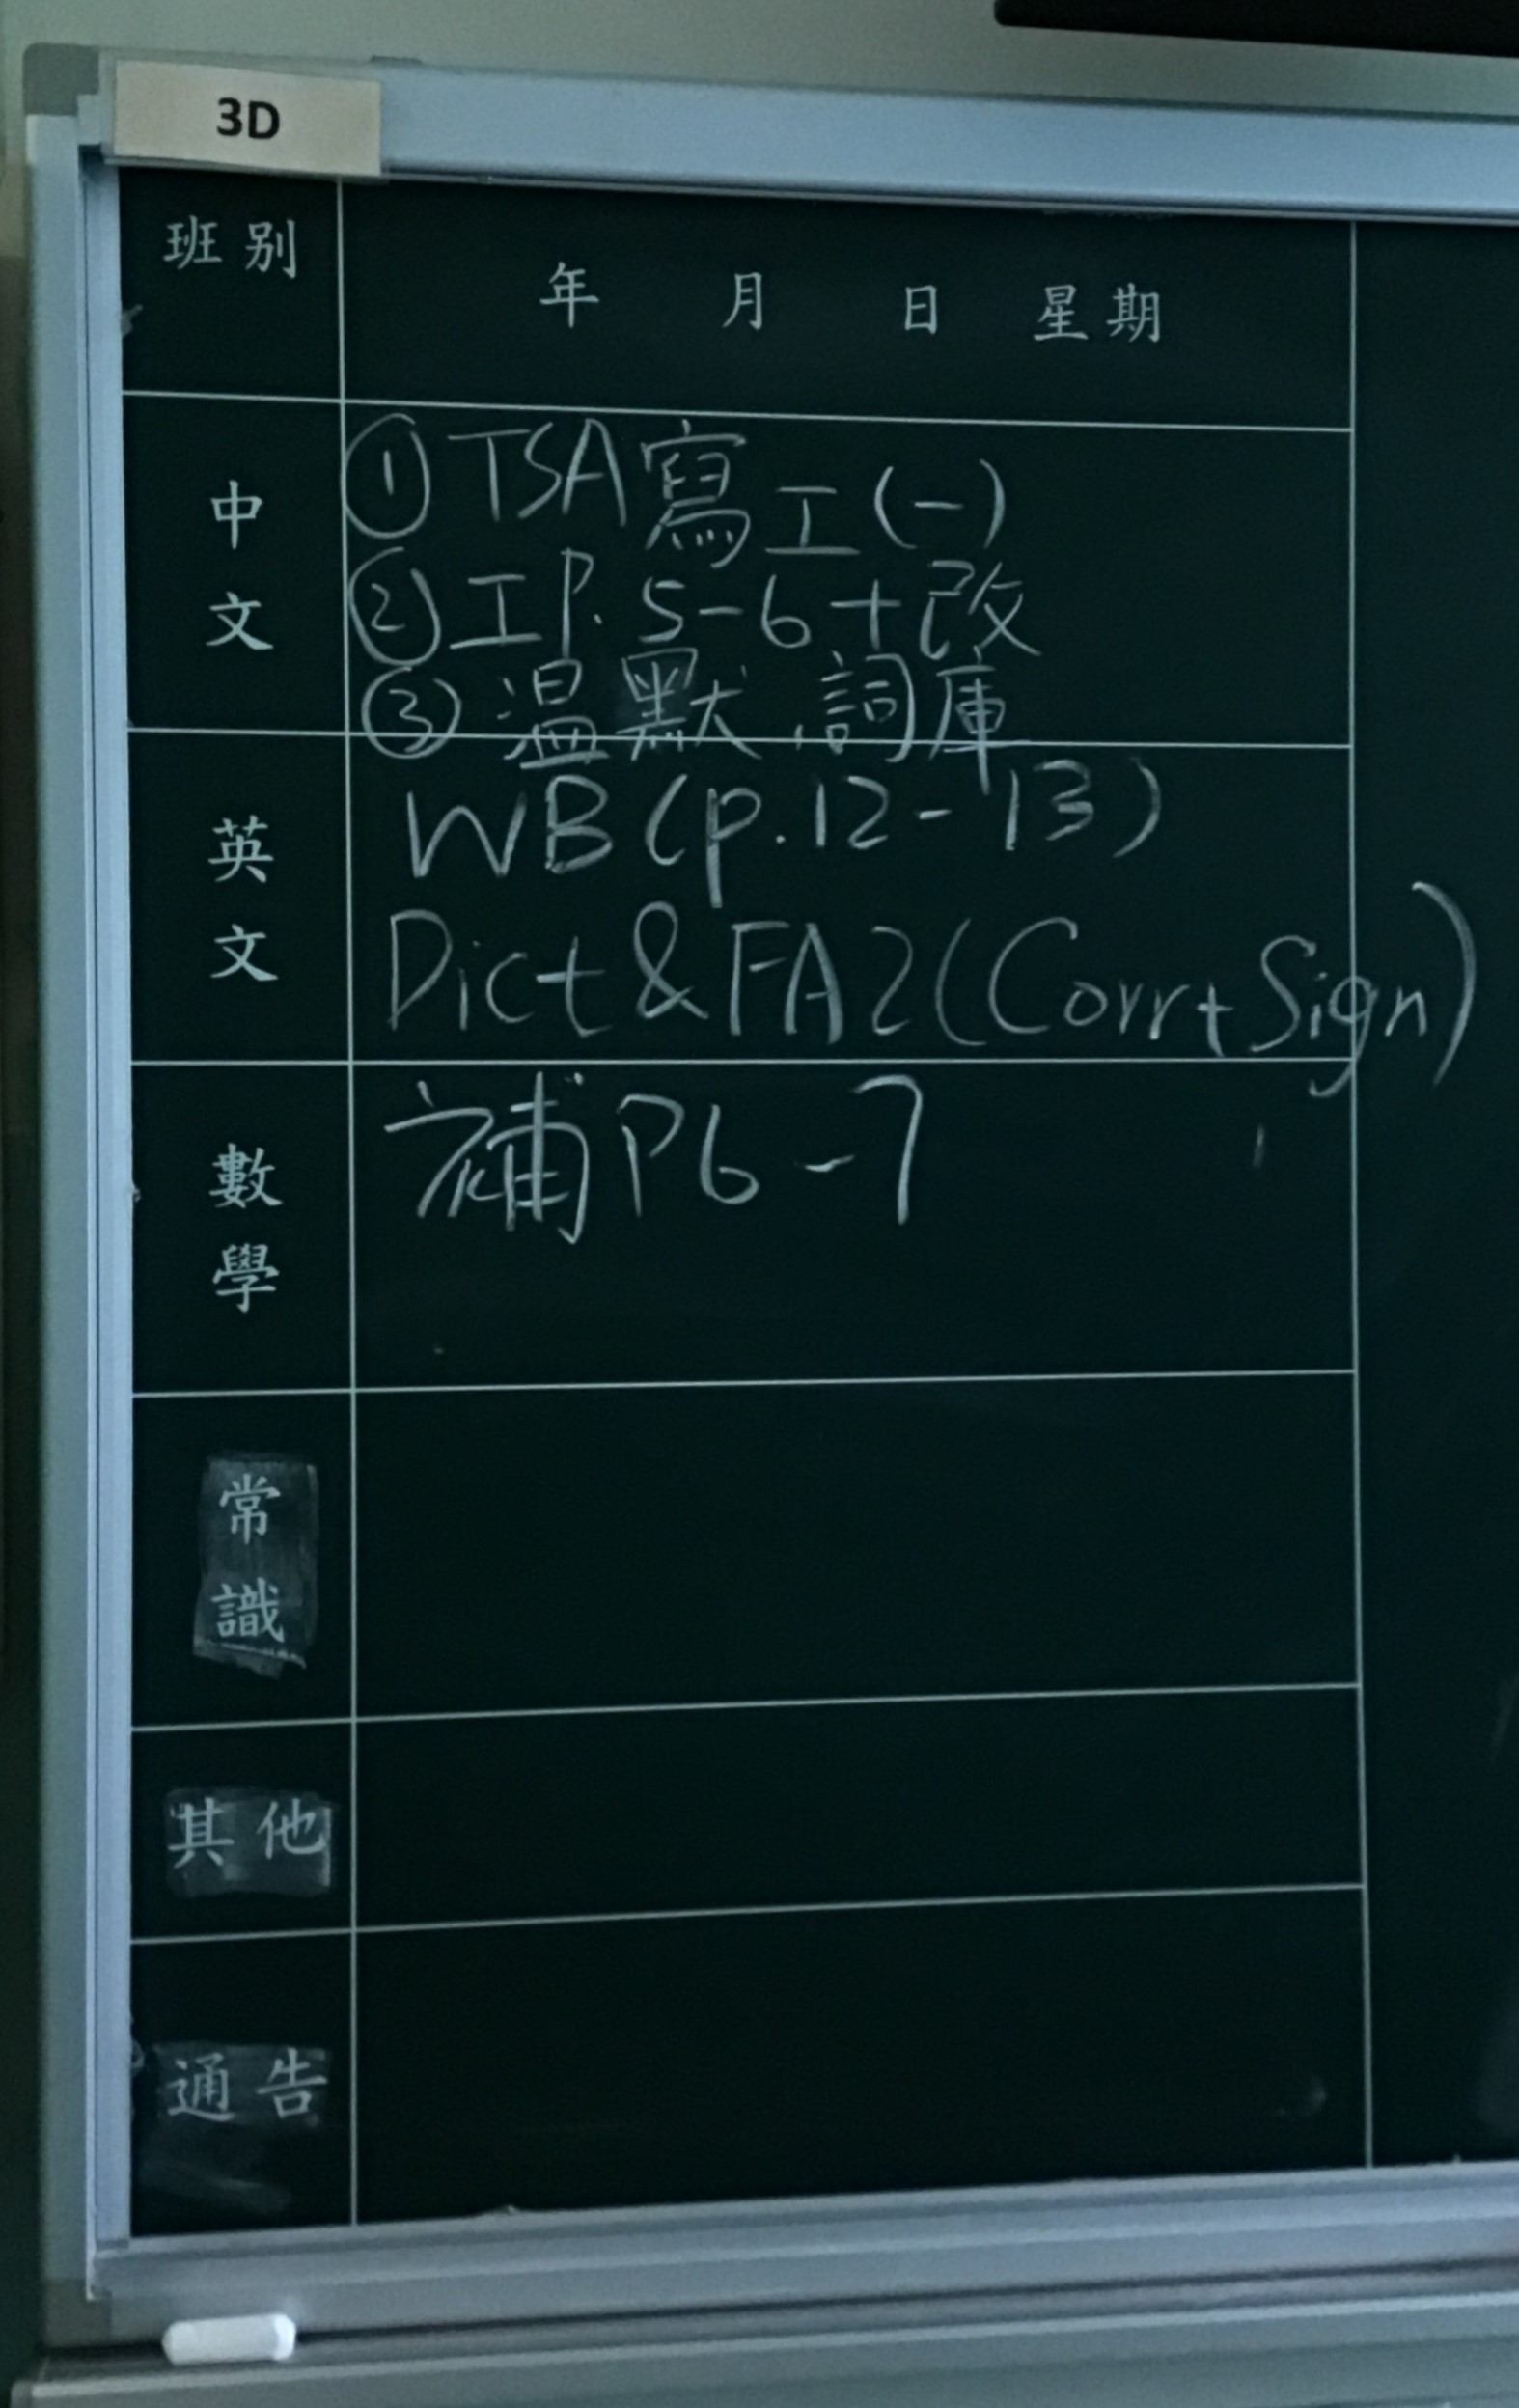 3D
班別
年 月 日 星期
中文
① TSA寫工(一)
② 工P.5-6+改
③ 溫默、詞庫
英文
WB(p.12-13)
Dict & FA2(Corr+Sign)
數學
補P6-7
常識
其他
通告